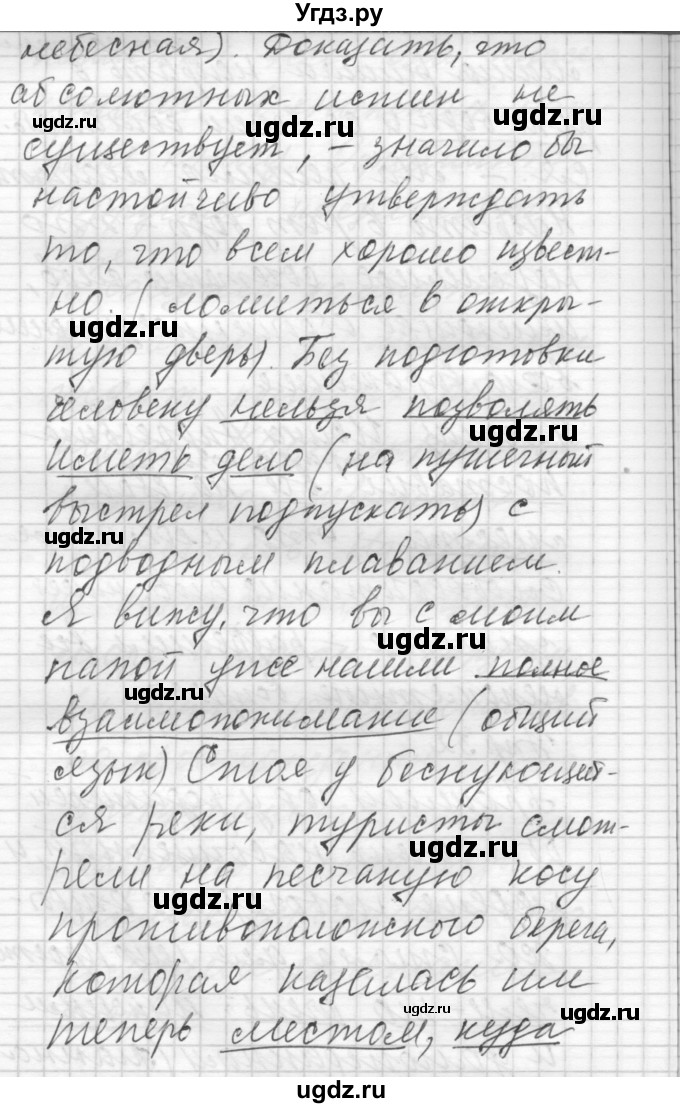 Угдз.ру
небесная). Доказать, что
абсолютных истин не
ugdz.ru
ugdz.ru
существует, – значило бы
настойчиво утверждать
ugdz.ru
то, что всем хорошо извест-
но. (ломиться в откры-
ugdz.ru
ugdz.ru
тую дверь). Без подготовки
человеку нельзя позволять
ugdz.ru
иметь дело (на пушечный
выстрел подпускать) с
ugdz.ru
подводным плаванием.
Я вижу, что вы с моим
ugdz.ru
папой уже нашли полное
ugdz.ru
взаимопонимание (общий
язык) Стоя у беснующей-
ся реки, туристы смот-
ugdz.ru
рели на песчаную косу
ugdz.ru
противоположного берега,
которая казалась им
ugdz.ru
теперь местом, куда
ugdz.ru
ugdz.ru